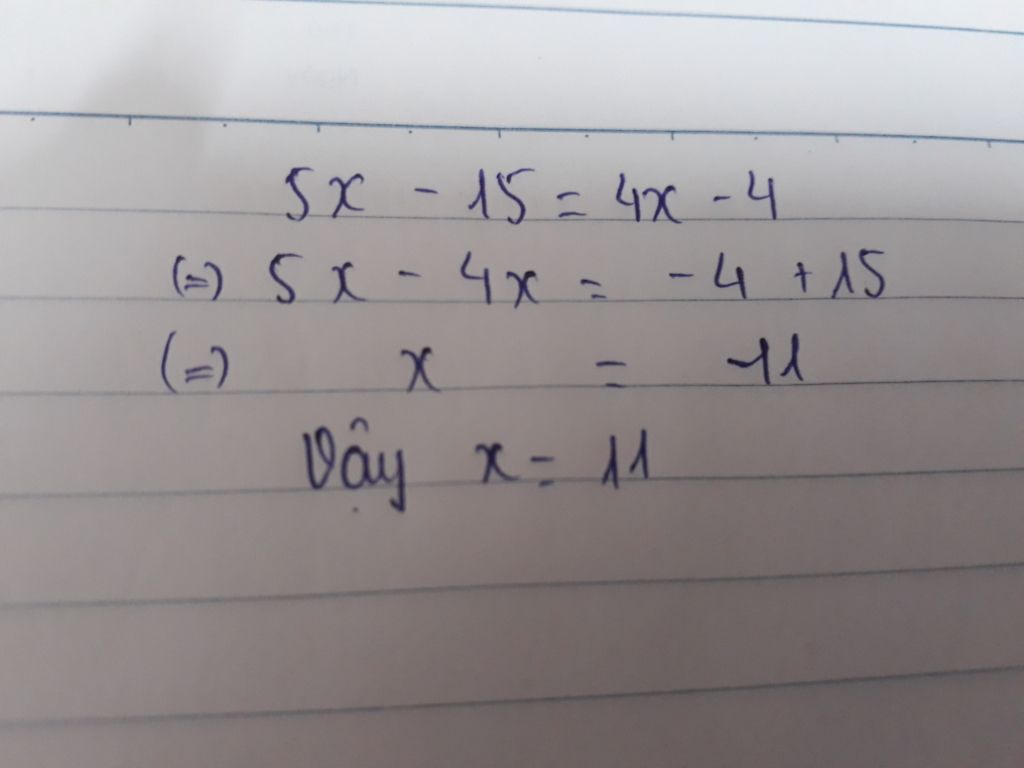 5x - 15 = 4x - 4
(=) 5x - 4x = -4 + 15
(=) x = 11
Vậy x = 11